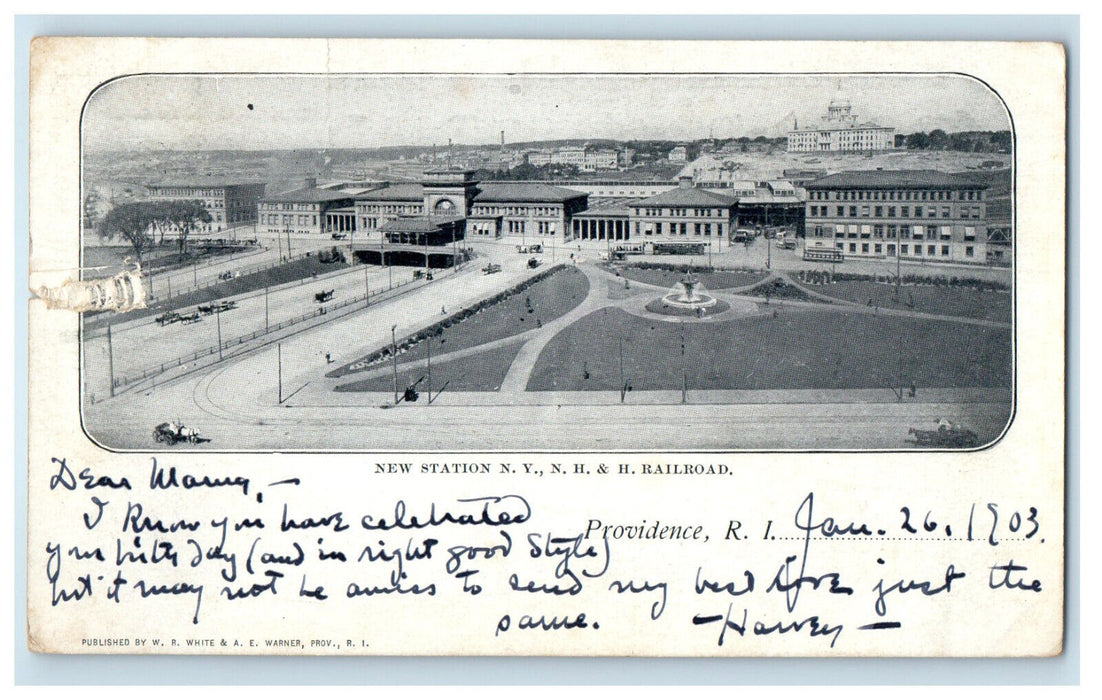 NEW STATION N. Y., N. H. & H. RAILROAD.
Dear Mamy, —
I know you have celebrated
Providence, R. I. Jan. 26, 1903.
your birth day (and in right good style)
but it may not be amiss to send my best love just the
same. — Harvey —
PUBLISHED BY W. R. WHITE & A. E. WARNER, PROV., R. I.